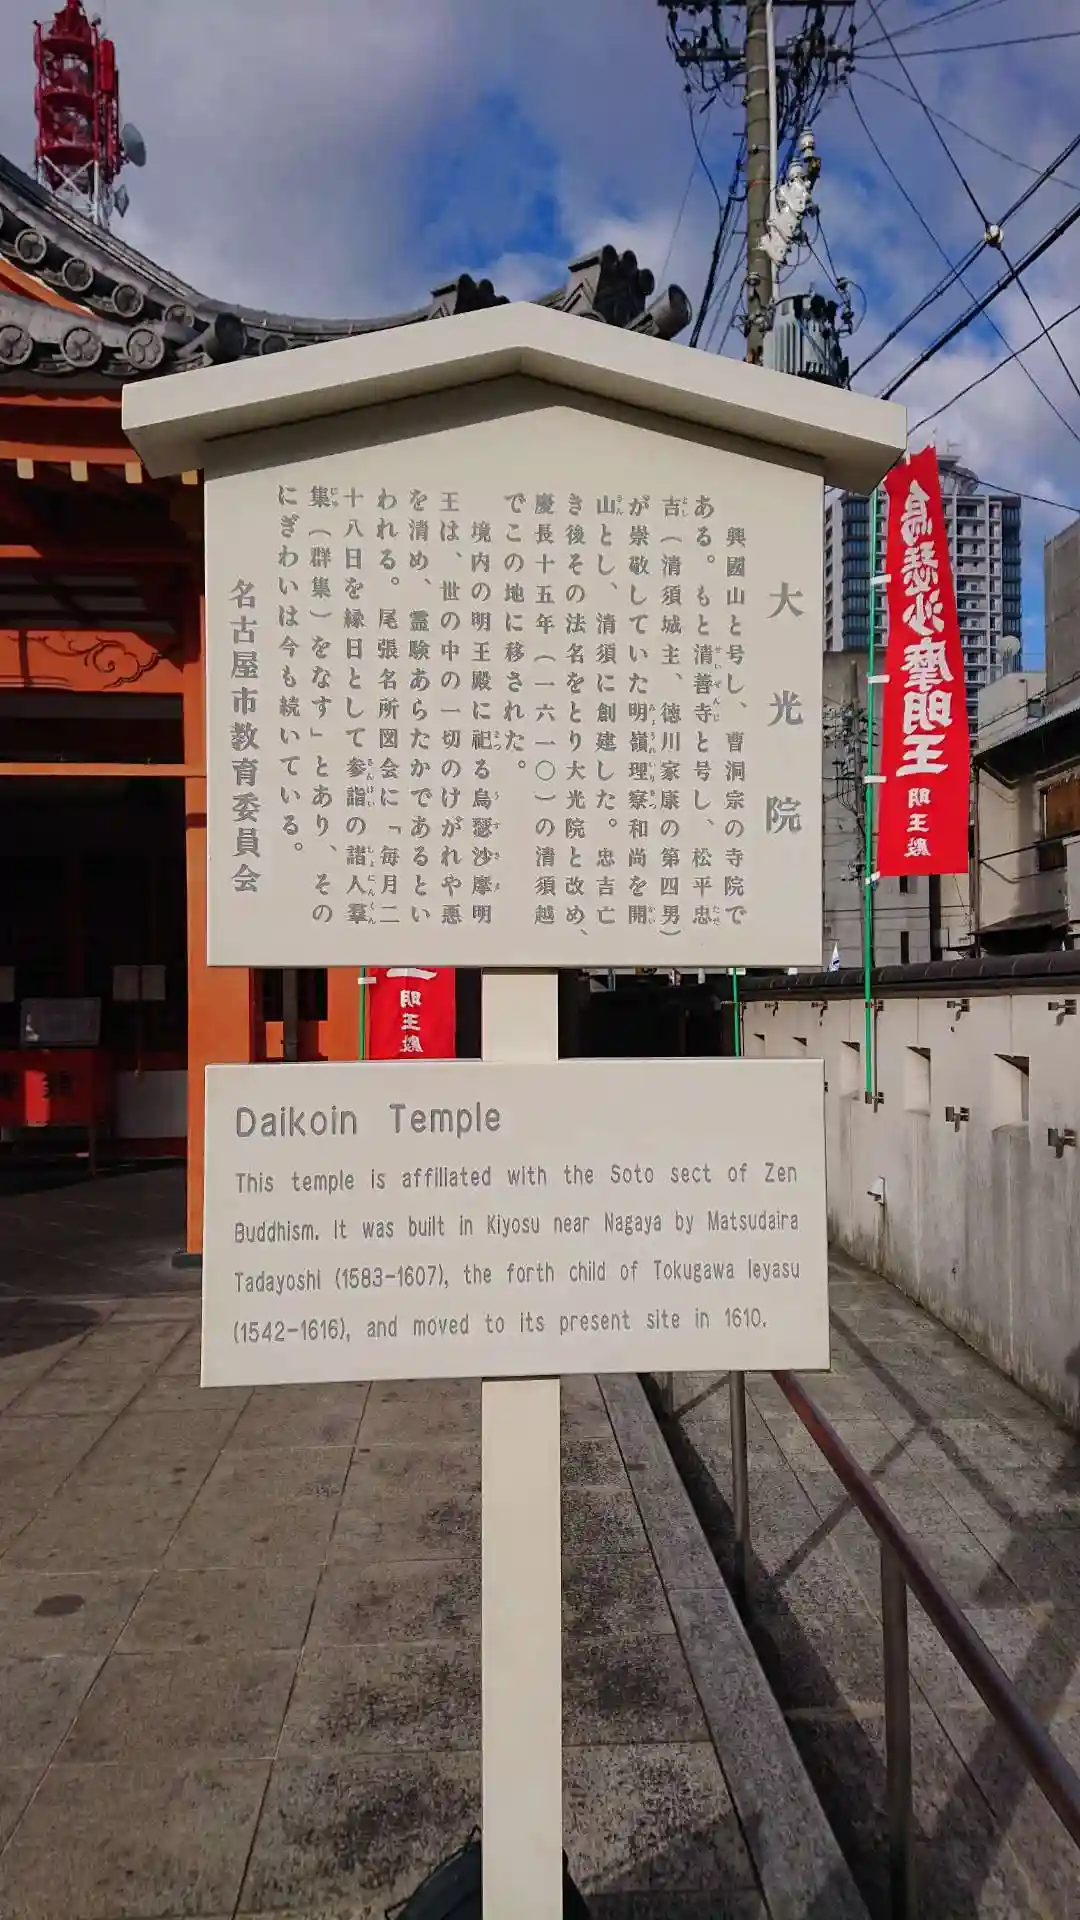 大光院
興國山と号し、曹洞宗の寺院で
ある。もと清善寺と号し、松平忠
吉（清須城主、徳川家康の第四男）
が崇敬していた明嶺理察和尚を開
山とし、清須に創建した。忠吉亡
き後その法名をとり大光院と改め、
慶長十五年（一六一〇）の清須越
でこの地に移された。
境内の明王殿に祀る烏瑟沙摩明
王は、世の中の一切のけがれや悪
を清め、霊験あらたかであるとい
われる。尾張名所図会に「毎月二
十八日を縁日として参詣の諸人羣
集（群集）をなす」とあり、その
にぎわいは今も続いている。
名古屋市教育委員会
Daikoin Temple
This temple is affiliated with the Soto sect of Zen
Buddhism. It was built in Kiyosu near Nagaya by Matsudaira
Tadayoshi (1583-1607), the forth child of Tokugawa Ieyasu
(1542-1616), and moved to its present site in 1610.
烏瑟沙摩明王
明王殿
王
明王殿